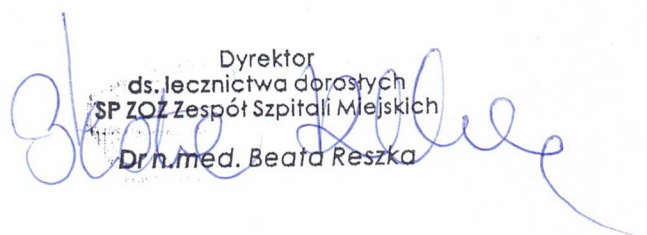 Dyrektor
ds. lecznictwa dorosłych
SP ZOZ Zespół Szpitali Miejskich
Dr n.med. Beata Reszka